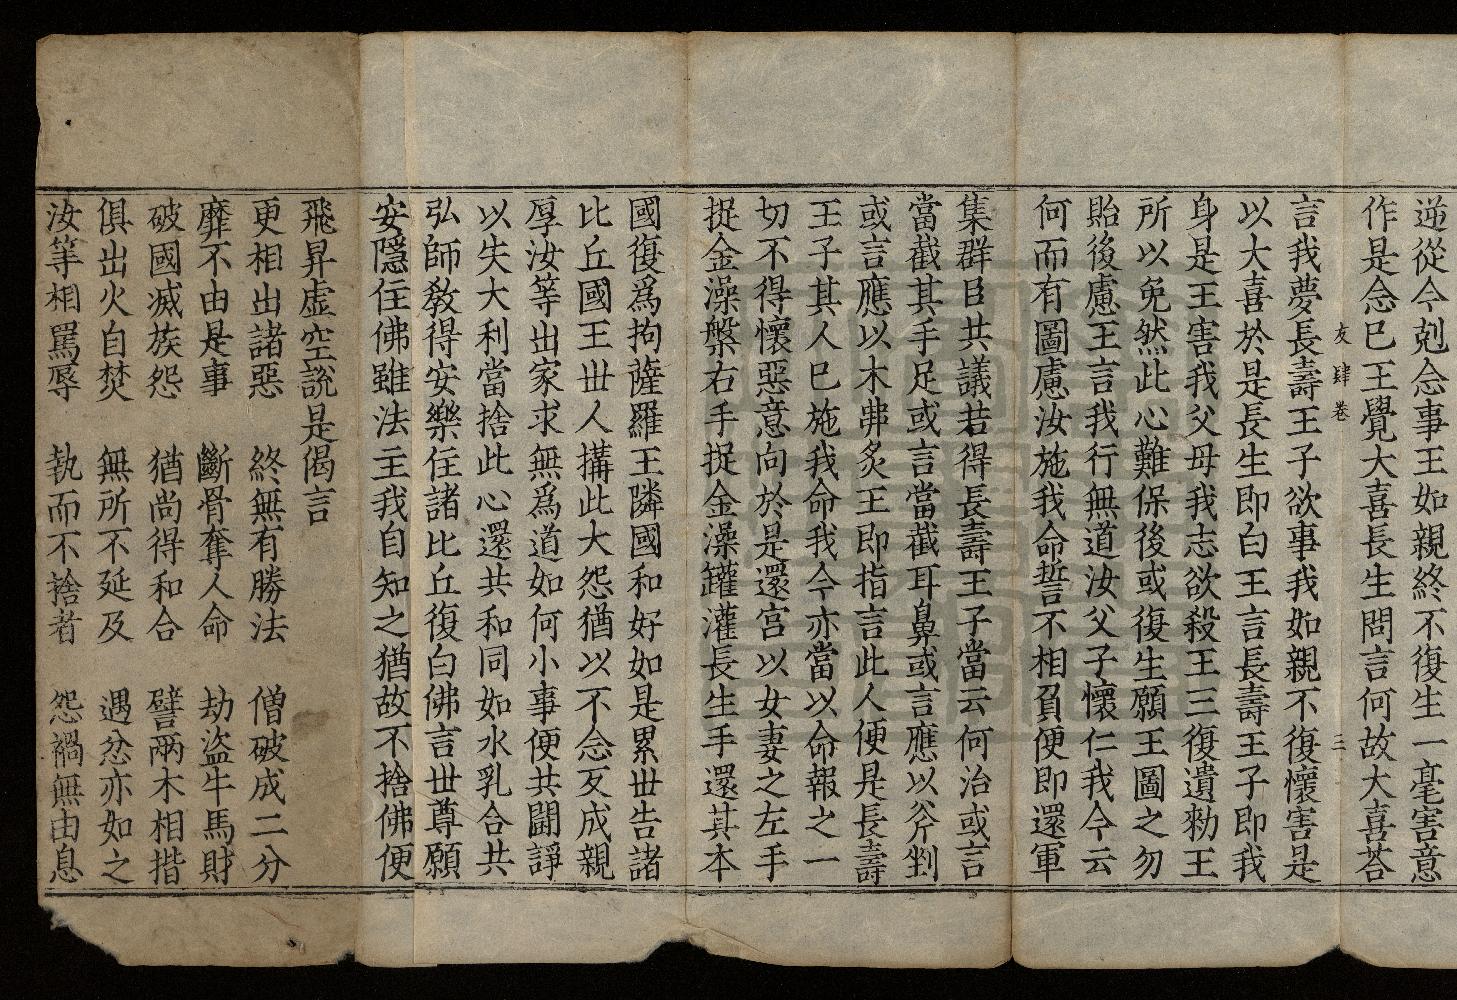 逆從今剋念事王如親終不復生一毫害意
作是念已王覺大喜長生問言何故大喜荅
友 肆 卷 三
言我夢長壽王子欲事我如親不復懷害是
以大喜於是長生即白王言長壽王子即我
身是王害我父母我志欲殺王三復遺勑王
所以免然此心難保後或復生願王圖之勿
貽後慮王言我行無道汝父子懷仁我今云
何而有圖慮汝施我命誓不相負便即還軍
集群臣共議若得長壽王子當云何治或言
當截其手足或言當截耳鼻或言應以斧剉
或言應以木弗炙王即指言此人便是長壽
王子其人已施我命我今亦當以命報之一
切不得懷惡意向於是還宮以女妻之左手
捉金澡槃右手捉金澡罐灌長生手還其本
國復爲拘薩羅王隣國和好如是累世告諸
比丘國王世人搆此大怨猶以不念更成親
厚汝等出家求無爲道如何小事便共鬪諍
以失大利當捨此心還共和同如水乳合共
弘師敎得安樂住諸比丘復白佛言世尊願
安隱住佛雖法主我自知之猶故不捨佛便
飛昇虛空說是偈言
更相出諸惡　終無有勝法　僧破成二分
靡不由是事　斷骨奪人命　劫盜牛馬財
破國滅族怨　猶尚得和合　譬兩木相揩
俱出火自焚　無所不延及　遇忿亦如之
汝等相罵辱　執而不捨者　怨禍無由息